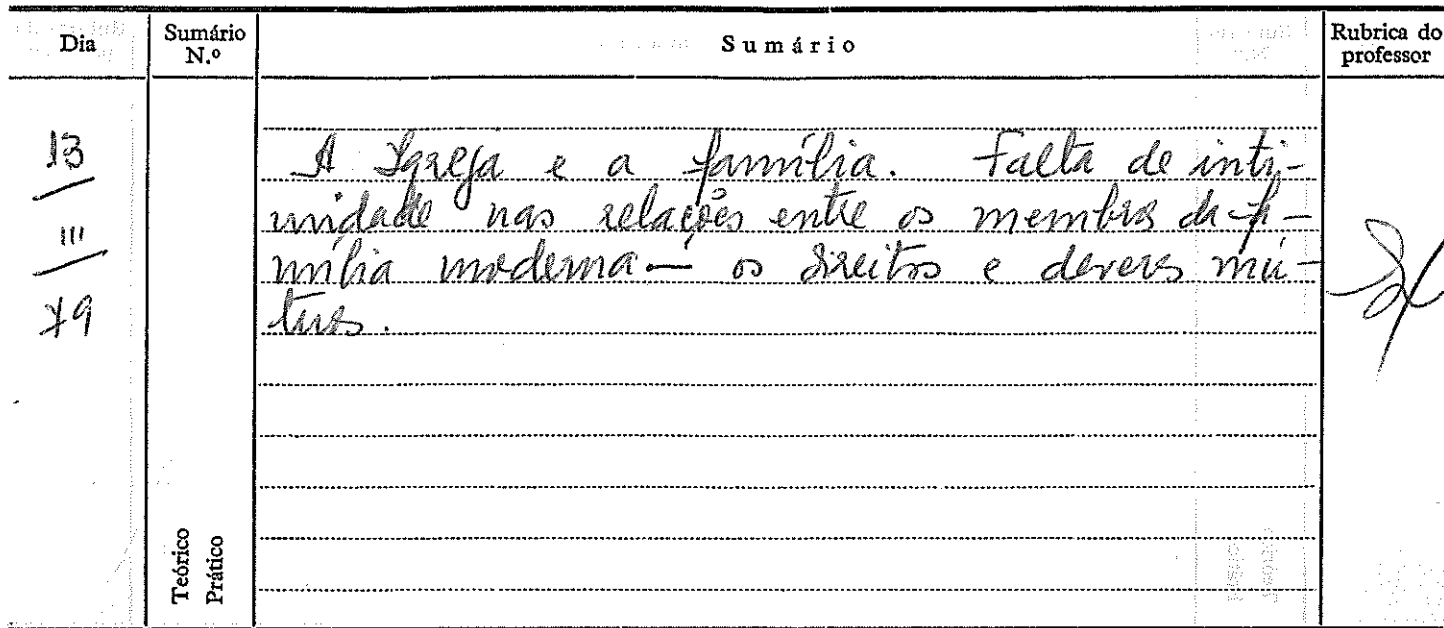 Dia
Sumário
N.º
Sumário
Rubrica do
professor
13
III
79
A Igreja e a família. Falta de inti-
midade nas relações entre os membros da fa-
mília moderna — os direitos e deveres mú-
tuos.
Teórico
Prático